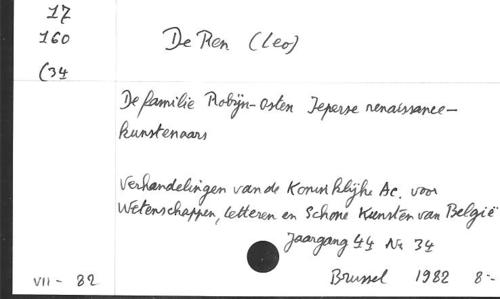 17
160
(34
De Ren (Leo)
De familie Robijn-Osten Ieperse renaissance-
kunstenaars
Verhandelingen van de Koninklijke Ac. voor
Wetenschappen, letteren en Schone Kunsten van België
Jaargang 44 Nr 34
VII - 82
Brussel 1982 8.-